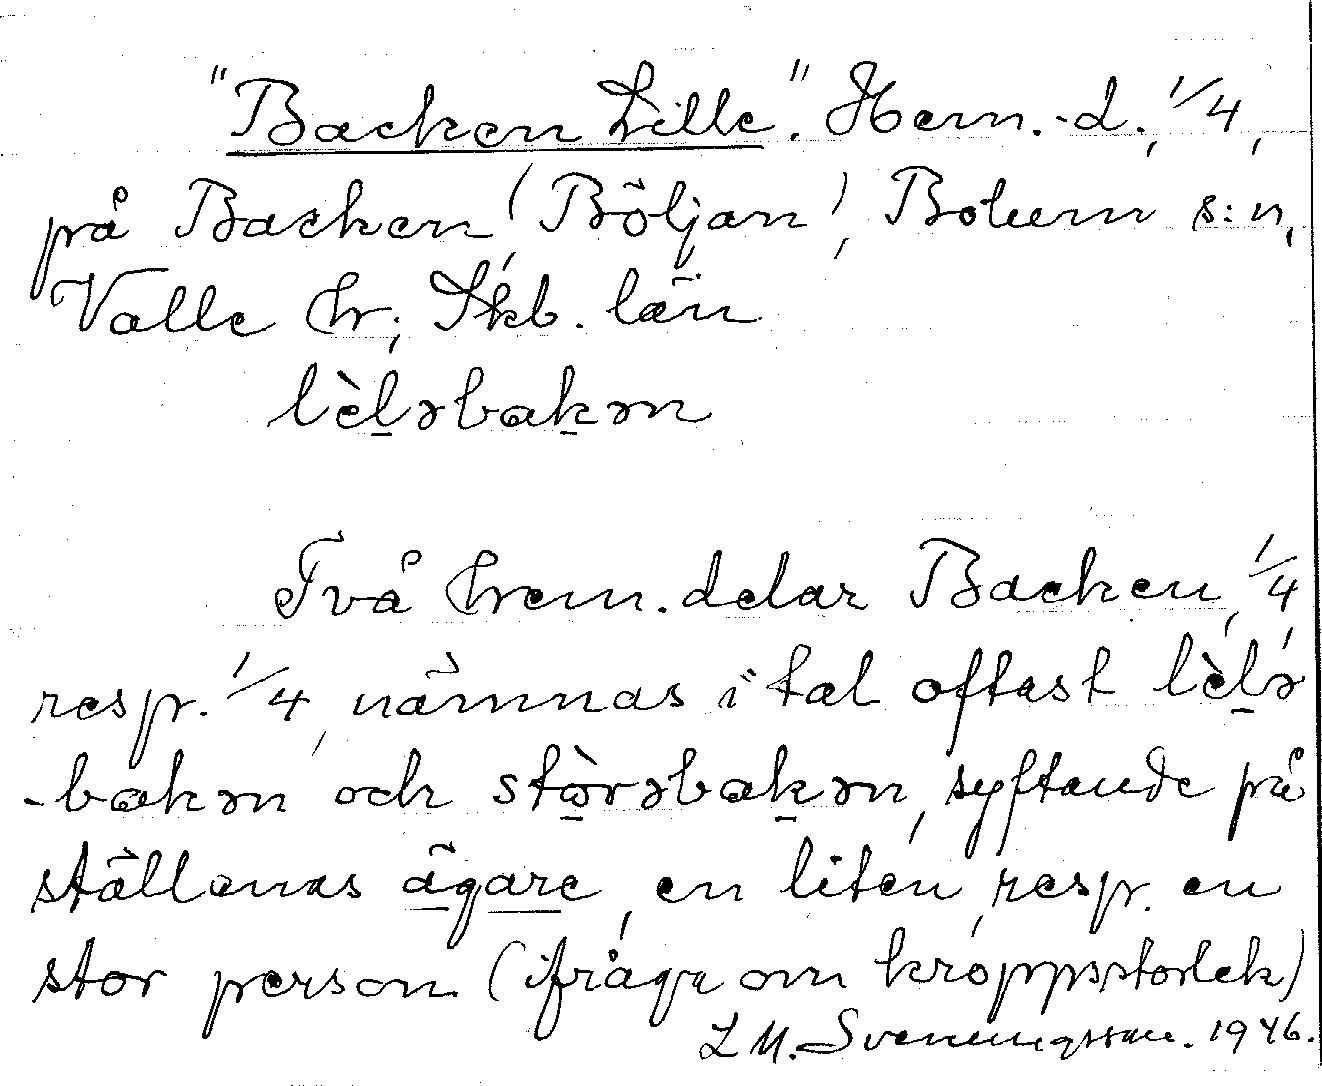 "Backen Lille". Hem.-d., 1/4,
på Backen, (Böljan), Bolum s:n,
Valle hr; Skb. län
lèlɘbakɘn
Två hem.delar Backen, 1/4,
resp. 1/4, nämnas i tal oftast lèlɘ
-bakɘn och stòrɘbakɘn, syftande på
ställenas ägare, en liten, resp. en
stor person (ifråga om kroppsstorlek)
L M. Svenungsson. 1946.